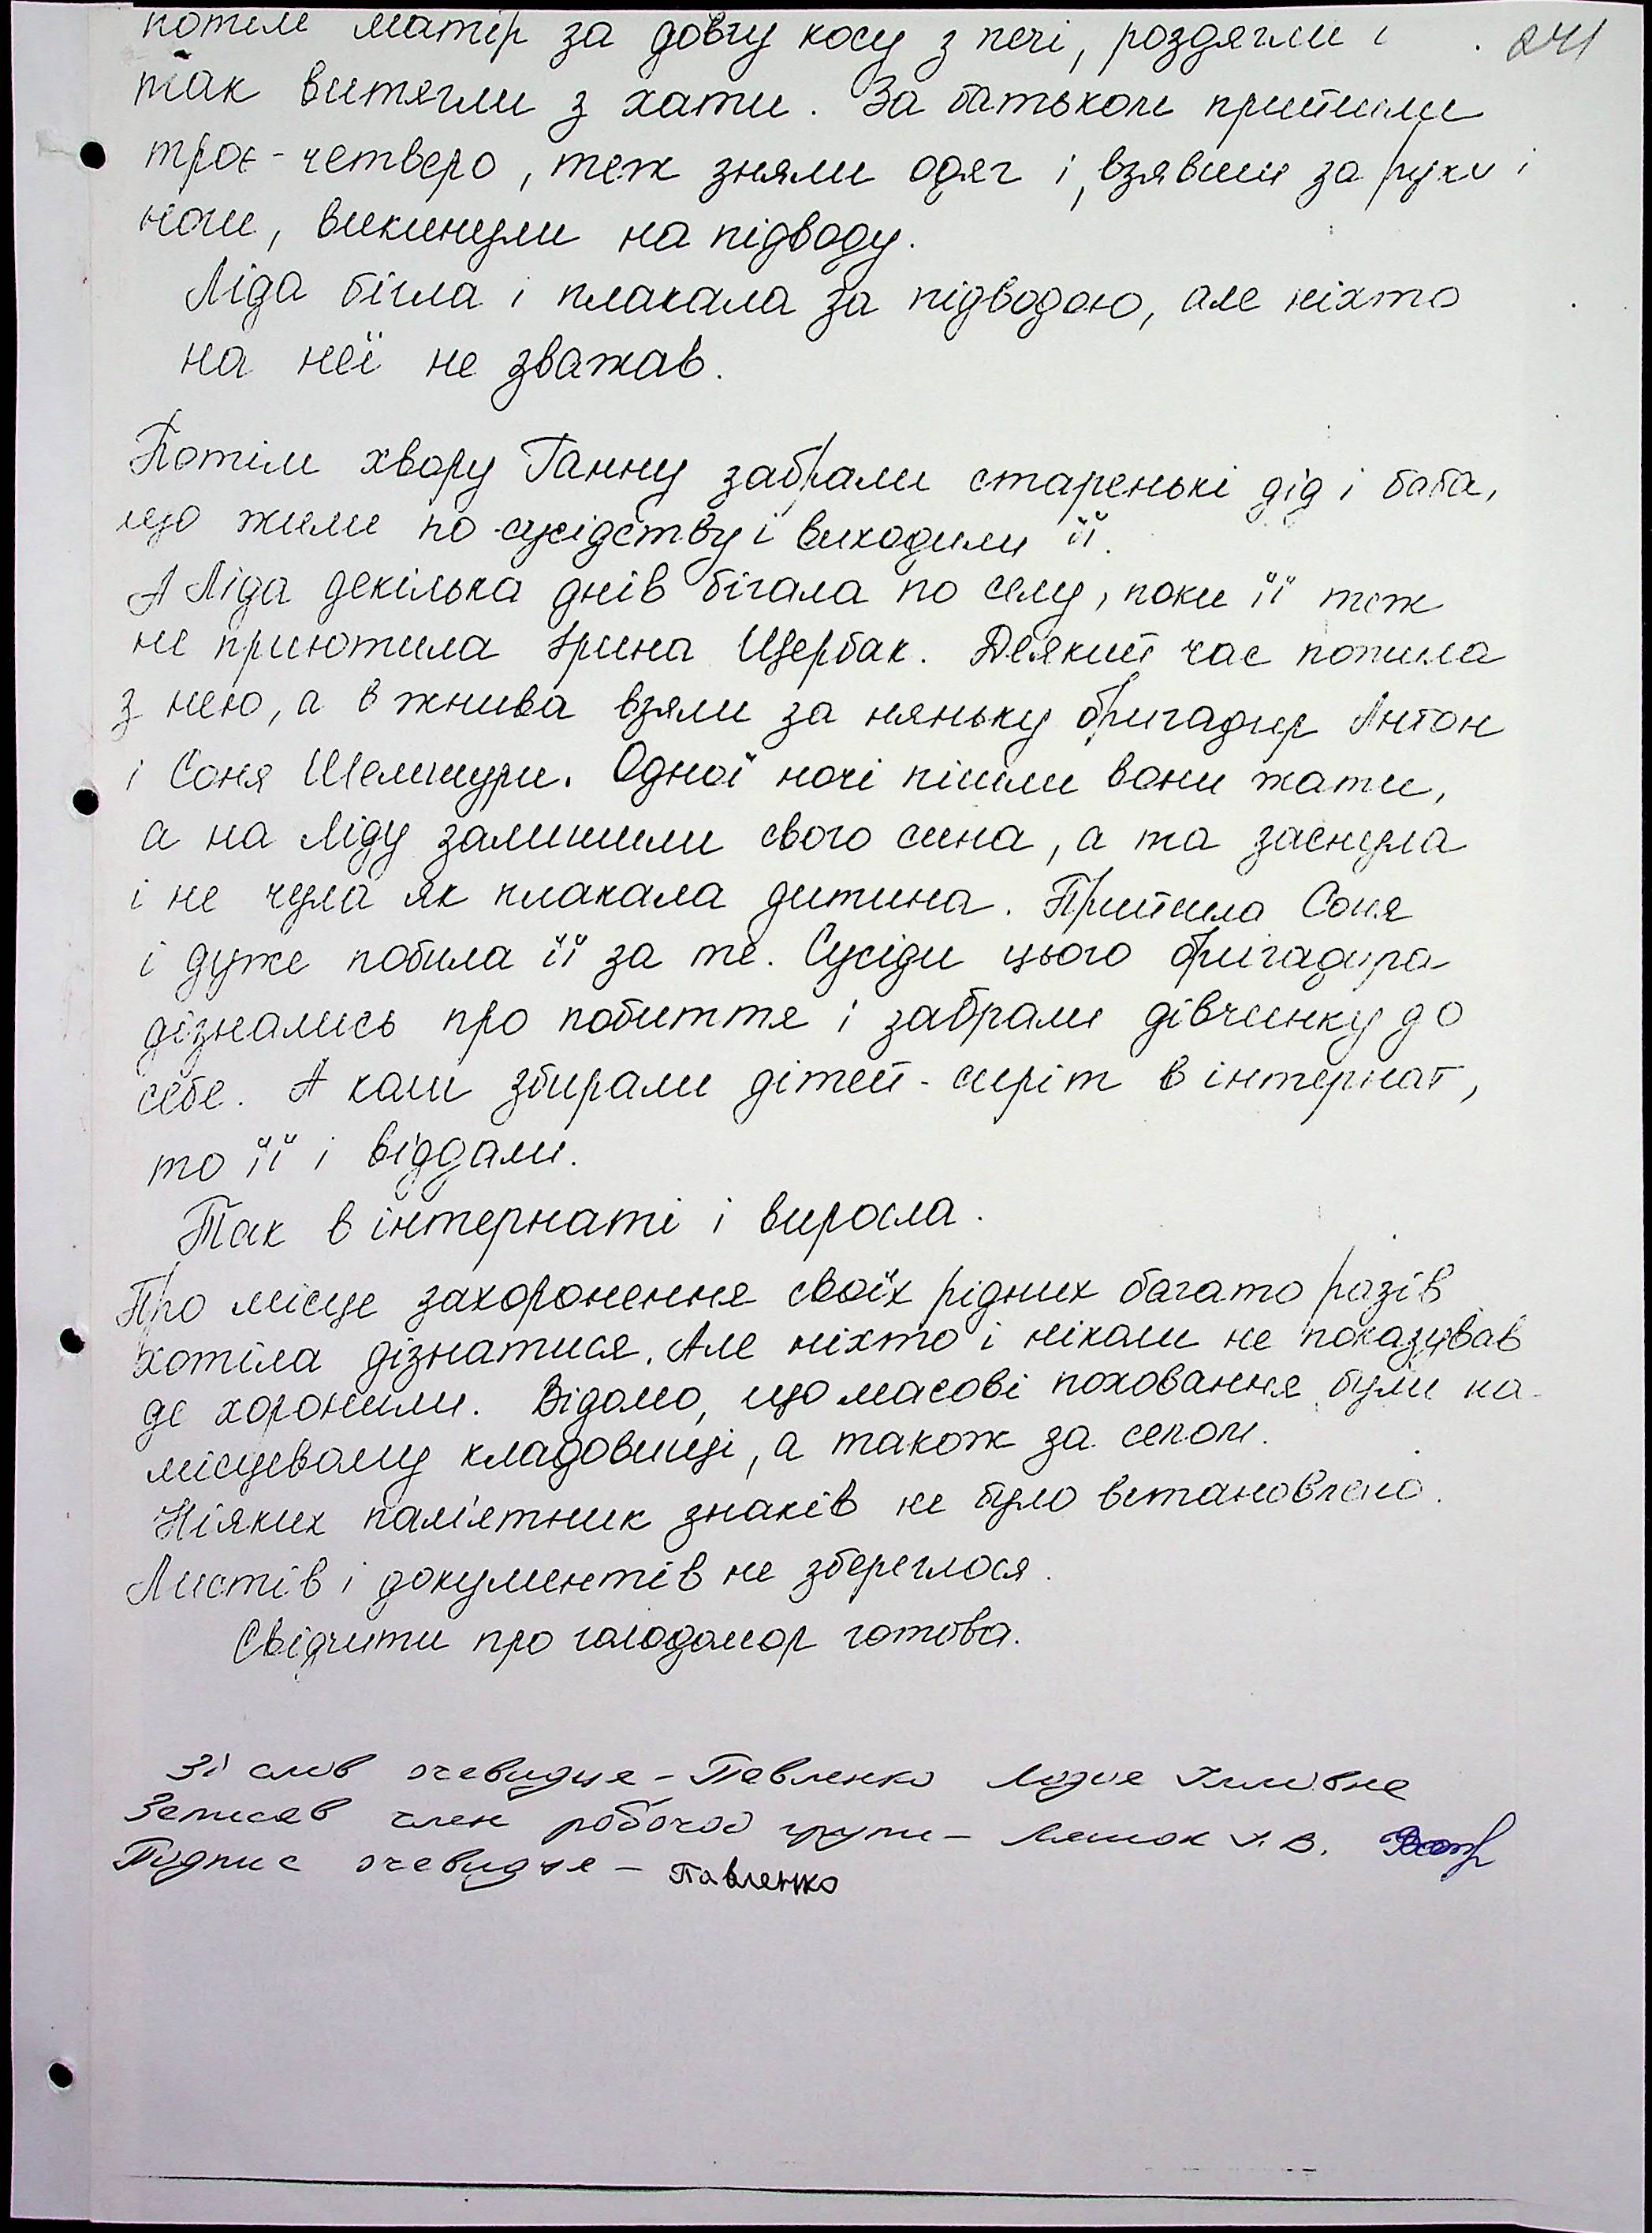 потім матір за довгу косу з печі, роздягли і
241
так витягли з хати. За батьком прийшли
троє-четверо, теж зняли одяг і, взявши за руки і
ноги, викинули на підводу.
Ліда бігла і плакала за підводою, але ніхто
на неї не зважав.
Потім хвору Ганну забрали старенькі дід і баба,
що жили по-сусідству і виходили її.
А Ліда декілька днів бігала по селу, поки її теж
не приютила Ірина Щербак. Деякий час пожила
з нею, а в жнива взяли за няньку бригадир Антон
і Соня Шемшури. Одної ночі пішли вони жати,
а на Ліду залишили свого сина, а та заснула
і не чула як плакала дитина. Прийшла Соня
і дуже побила її за те. Сусіди цього бригадира
дізнались про побиття і забрали дівчинку до
себе. А коли збирали дітей-сиріт в інтернат,
то її і віддали.
Так в інтернаті і виросла.
Про місце захоронення своїх рідних багато разів
хотіла дізнатися. Але ніхто і ніколи не показував
де хоронили. Відомо, що масові поховання були на
місцевому кладовищі, а також за селом.
Ніяких пам'ятник знаків не було встановлено.
Листів і документів не збереглося.
Свідчити про голодомор готова.
Зі слов очевидця - Павленко Лідія
Записав член робочої групи - В.
Підпис очевидця - Павленко